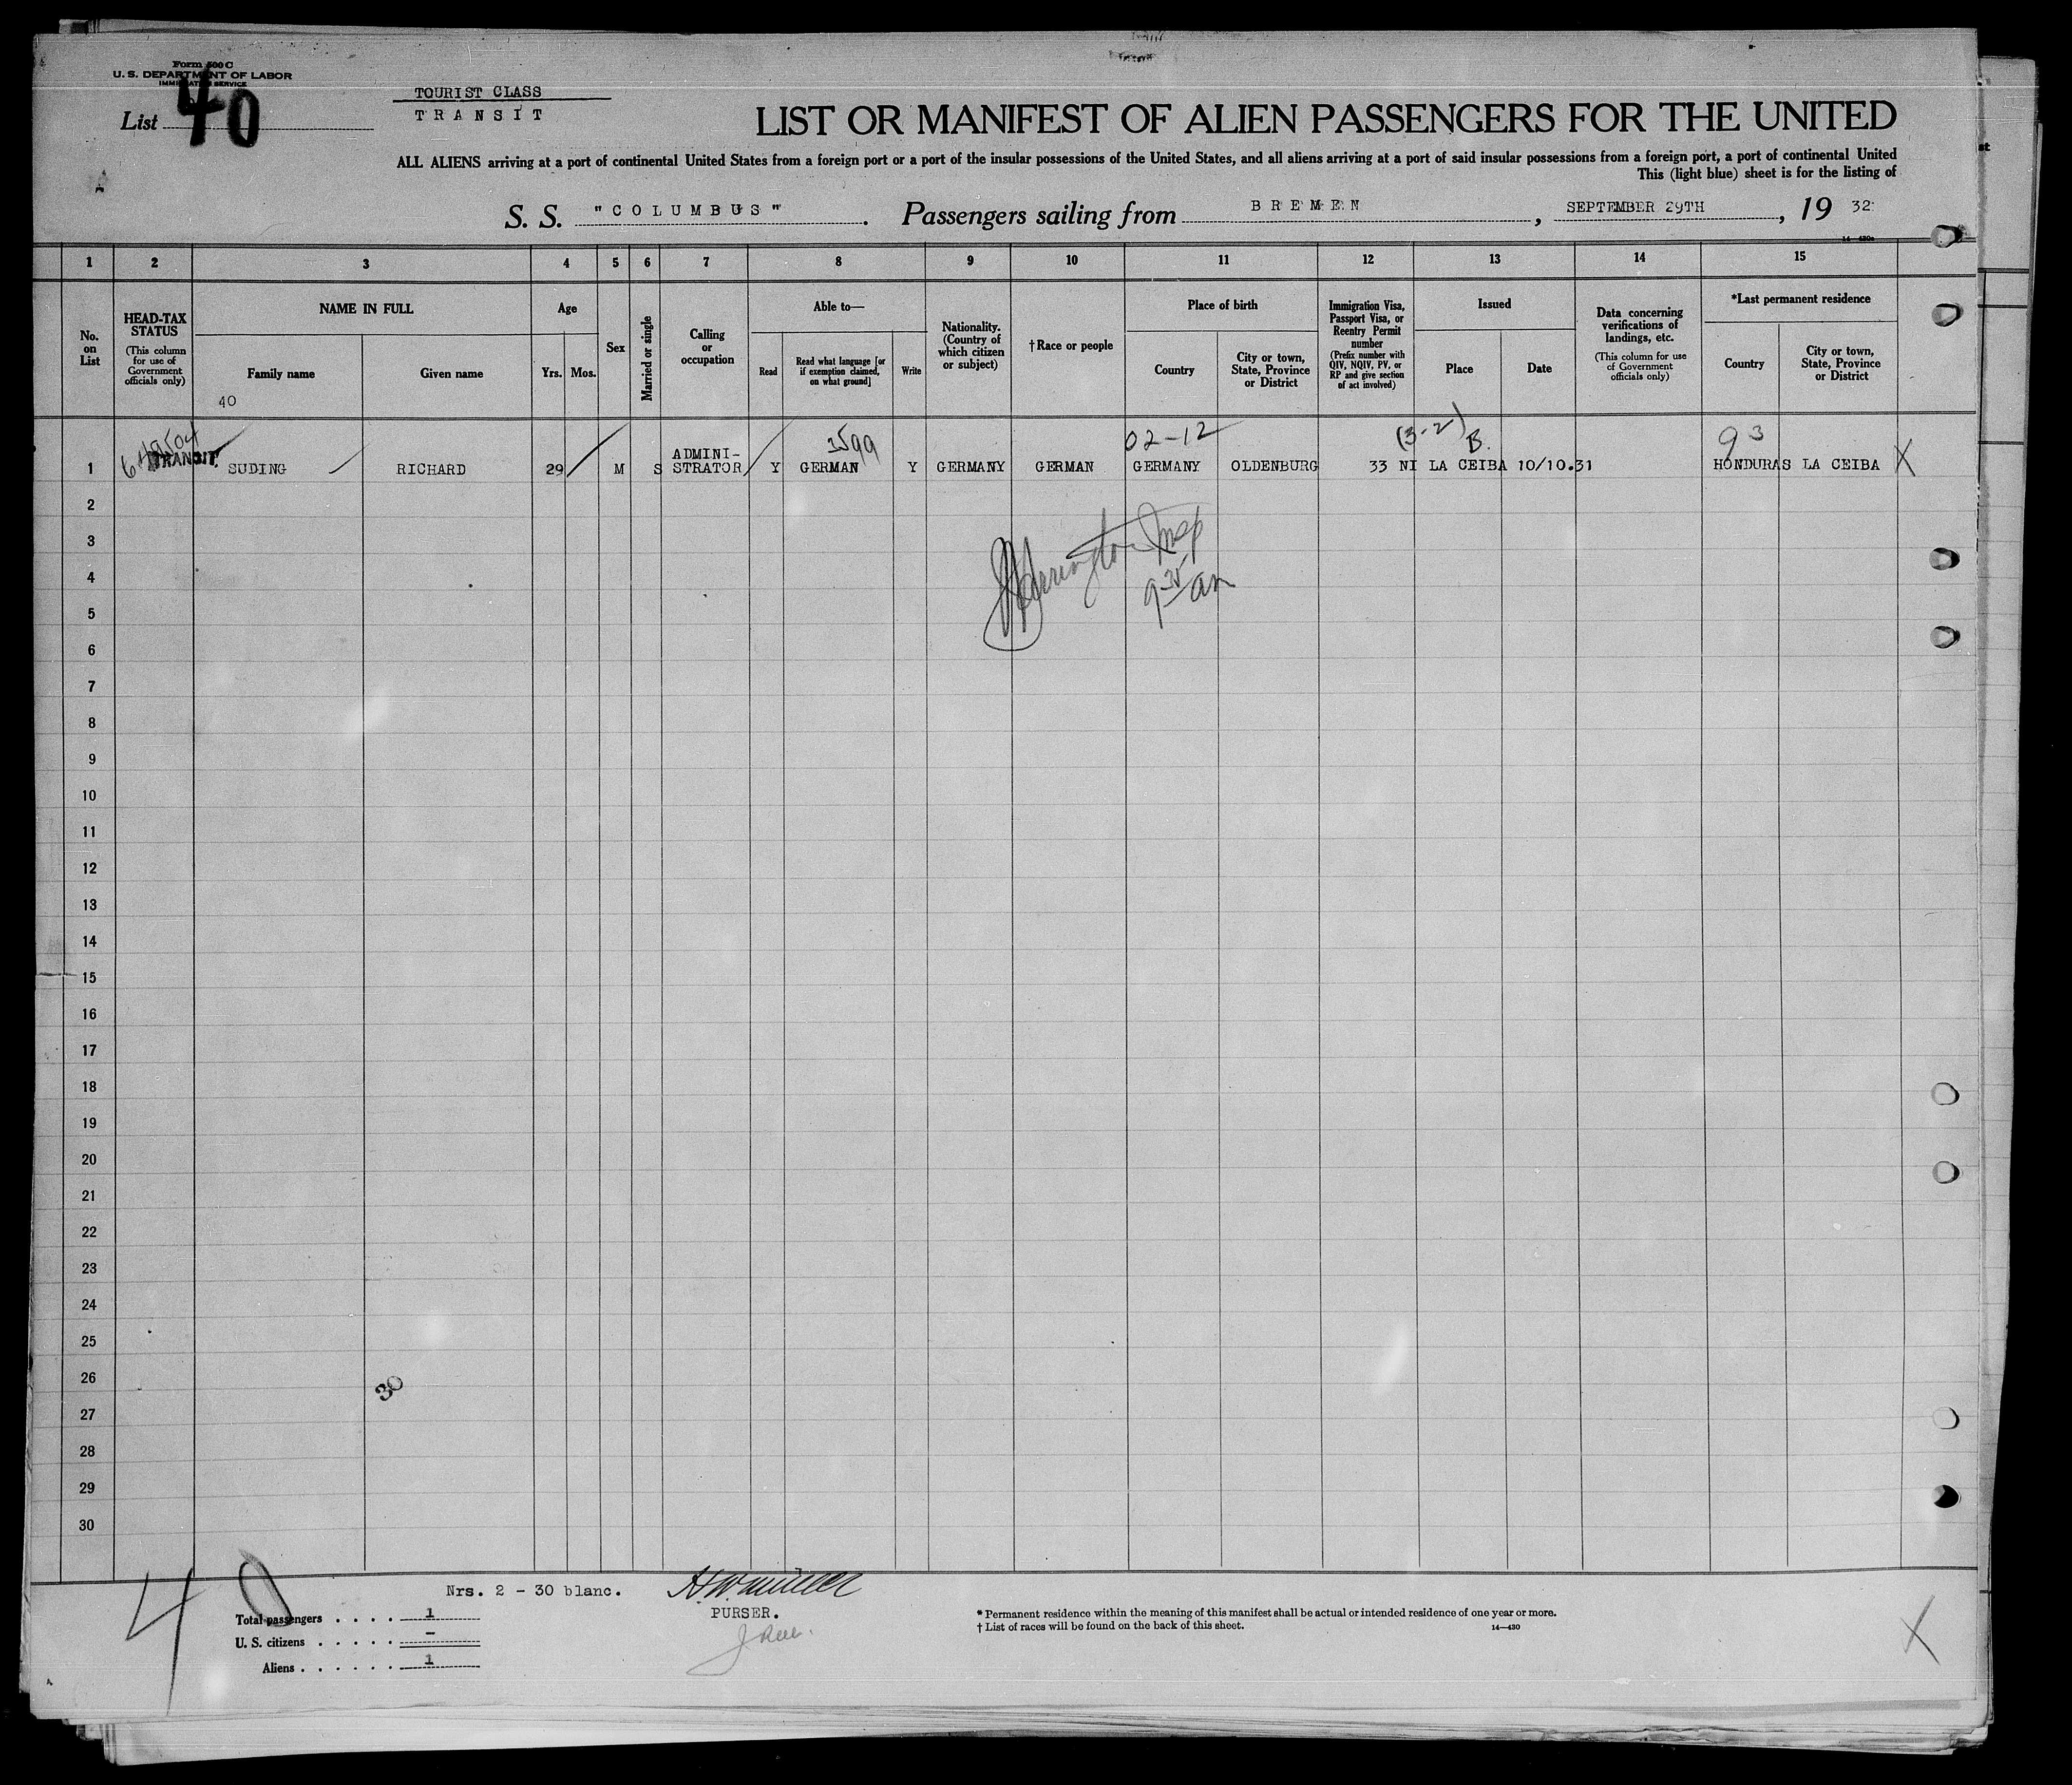 Form 500 C
U. S. DEPARTMENT OF LABOR
IMMIGRATION SERVICE
List 40
TOURIST CLASS
TRANSIT
LIST OR MANIFEST OF ALIEN PASSENGERS FOR THE UNITED
ALL ALIENS arriving at a port of continental United States from a foreign port or a port of the insular possessions of the United States, and all aliens arriving at a port of said insular possessions from a foreign port, a port of continental United
This (light blue) sheet is for the listing of
S. S. "COLUMBUS". Passengers sailing from BREMEN, SEPTEMBER 29TH, 19 32
1 2 3 4 5 6 7 8 9 10 11 12 13 14 15
No. on List
HEAD-TAX STATUS
(This column for use of Government officials only)
NAME IN FULL
Family name
Given name
40
Age
Yrs. Mos.
Sex
Married or single
Calling or occupation
Able to—
Read
Read what language [or if exemption claimed, on what ground]
Write
Nationality. (Country of which citizen or subject)
†Race or people
Place of birth
Country
City or town, State, Province or District
Immigration Visa, Passport Visa, or Reentry Permit number
(Prefix number with QIV, NQIV, PV, or RP and give section of act involved)
Issued
Place
Date
Data concerning verifications of landings, etc.
(This column for use of Government officials only)
*Last permanent residence
Country
City or town, State, Province or District
3599 02-12 (3-2) B. 93
1 TRANSIT. SUDING RICHARD 29 M S ADMINI-
STRATOR Y GERMAN Y GERMANY GERMAN GERMANY OLDENBURG 33 NI LA CEIBA 10/10.31 HONDURAS LA CEIBA X
2
3
4
9 35 am
5
6
7
8
9
10
11
12
13
14
15
16
17
18
19
20
21
22
23
24
25
26
30
27
28
29
30
40
Nrs. 2 - 30 blanc.
H. W. Müller
PURSER.
Total passengers . . . . 1
U. S. citizens . . . . . -
Aliens . . . . . . 1
* Permanent residence within the meaning of this manifest shall be actual or intended residence of one year or more.
† List of races will be found on the back of this sheet.
14—430
X